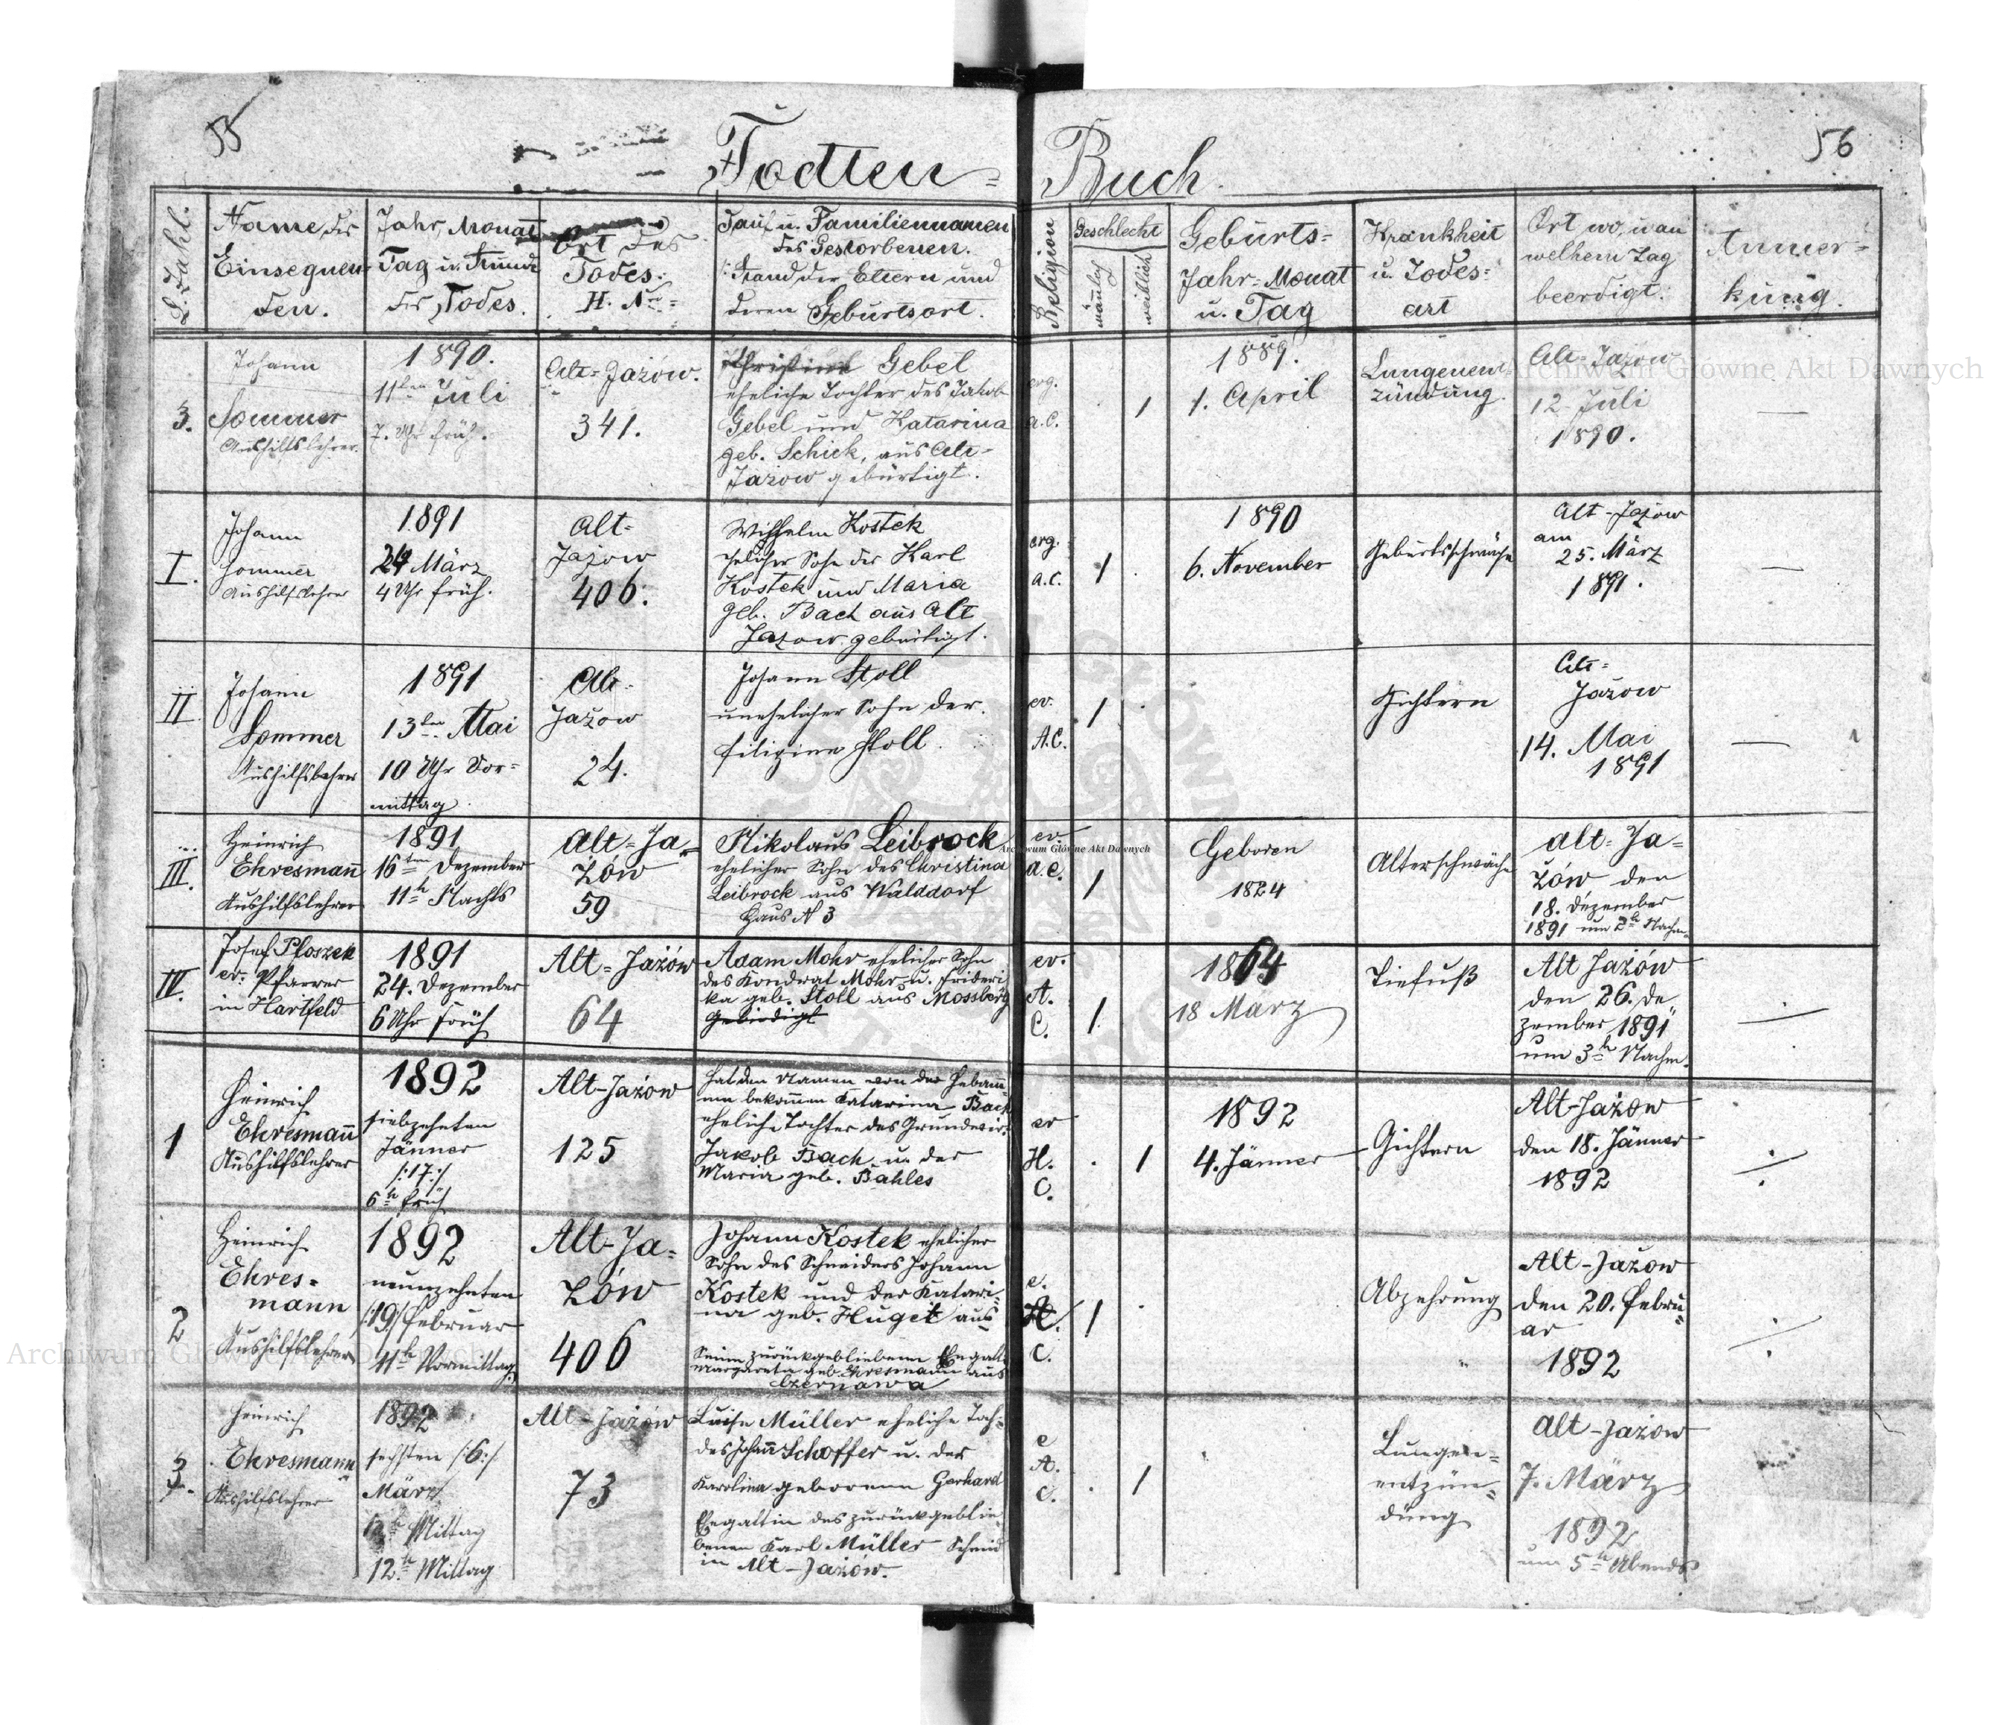 55
56
Todten = Buch.
L. Zahl.
Name, des
Einsegnen-
den.
Jahr, Monat
Tag u. Stunde
des Todes.
Ort des
Todes:
H. Nr.
Tauf u. Familiennamen
des Gestorbenen.
Stand der Eltern und
deren Geburtsort.
Religion
Geschlecht
männlich
weiblich
Geburts=
Jahr=Monat
u. Tag
Krankheit
u. Todes=
art
Ort wo, u. an
welchem Tag
beerdigt.
Anmer=
kung.
3.
Johann
Sommer
Aushilfslehrer.
1890.
11ten Juli
7. Uhr früh.
Alt=Jażow.
341.
Christine Gebel
eheliche Tochter des Jakob
Gebel und Katarina
geb. Schick, aus Alt-
Jażow gebürtigt.
evg.
a.C.
1
1889.
1. April
Lungenent
zündung.
Alt=Jazow
12 Juli
1890.
—
I.
Johann
Sommer
Aushilfslehrer
1891
24 März
4 Uhr früh.
Alt=
Jażow
406.
Wilhelm Kostek
ehelicher Sohn des Karl
Kostek und Maria
geb. Bach aus Alt
Jazow gebürtigt.
evg.
a.C.
1
1890
6. November
Geburtsschwäche
Alt-Jażow
am
25. März
1891.
—
II.
Johann
Sommer
Aushilfslehrer
1891
13ten Mai
10 Uhr Vor=
mittag
Alt=
Jażow
24.
Johann Stoll
unehelicher Sohn der
Filizine Stoll.
ev.
A.C.
1
Gichtern
Alt=
Jażow
14. Mai
1891
—
III.
Heinrich
Ehresmann
Aushilfslehrer
1891
16ten Dezember
11h Nachts
Alt=Ja=
żow
59
Nikolaus Leibrock
ehelicher Sohn des Christina
Leibrock aus Walddorf
Haus N 3
ev.
a.C.
1
Geboren
1824
Alterschwäche
Alt=Ja=
żów den
18. Dezember
1891 um 2h Nachm.
IV.
Josef Ploszek
ev. Pfarrer
in Hartfeld
1891
24. Dezember
6 Uhr Früh
Alt=Jażów
64
Adam Mohr ehelicher Sohn
des Kondrat Mohr u. Frideri
ka geb. Stoll aus Mossberg
ev.
A.
C.
1.
1864
18 März
Alt Jażów
den 26. De
zember 1891
um 3h Nachm.
÷
1
Heinrich
Ehresmann
Aushilfslehrer
1892
siebzehnten
Jänner
/:17:/
6h früh
Alt-Jażow
125
hat den Namen von der Hebam=
me bekommen Katarina Bach
eheliche Tochter des Grundwir=
Jakob Bach u. der
Maria geb. Bahles
ev
H.
C.
1
1892
4. Jänner
Gichtern
Alt-Jażow
den 18. Jänner
1892
÷
2
Heinrich
Ehres=
mann
Aushilfslehrer
1892
neunzehnten
/:19:/ Februar
11h Vormittag
Alt-Ja=
żów
406
Johann Kostek ehelicher
Sohn des Schneiders Johann
Kostek und der Katari=
na geb. Huget aus
Seine zurückgebliebene Ehegatt.
Margareta geb. Ehresmann aus
Czernawa
e.
H.
C.
1
Abzehrung
Alt-Jażow
den 20. Febru=
ar
1892
÷
3.
Heinrich
Ehresmann
Aushilfslehrer
1892
sechsten /:6:/
März
12h Mittag
12h Mittag
Alt-Jażów
73
Luise Müller eheliche Toch=
des Johann Schoffer u. der
Karolina geborene Gerhard
Ehegattin des zurückgeblie=
benen Karl Müller Schmid
in Alt-Jażów.
e
A.
C.
1
Lungen=
entzün=
dung
Alt-Jażow
7. März
1892
um 5h Abends
Archiwum Główne Akt Dawnych
Archiwum Główne Akt Dawnych
Archiwum Główne Akt Dawnych